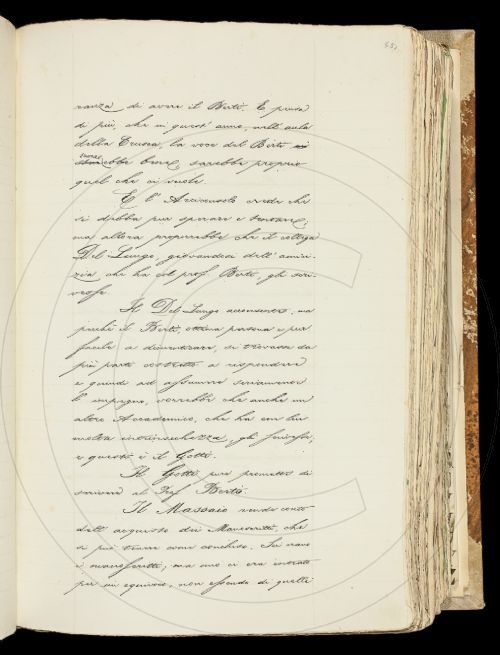 ranza di avere il Berti. E pensa
di più, che in quest'anno, nell'aula
della Crusca, la voce del Berti
sarebbe proprio
quel che ci vuole.
E l'Arciconsolo crede che
si debba pur sperare e tentare;
ma allora proporrebbe che il collega
Del Lungo, giovandosi dell'amici-
zia, che ha col prof. Berti, gli scri-
vesse.
Il Del Lungo acconsente, ma
perchè il Berti, ottima persona e pur
facile a dimenticare, si trovasse da
più parte costretto a rispondere
e quindi ad assumere seriamente
l'impegno, vorrebbe che anche un
altro Accademico, che ha con lui
molta intrinsichezza, gli scrivesse,
e questi è il Gotti.
Il Gotti pure promette di
scrivere al Prof. Berti.
Il Massaio rende conto
dell'acquisto dei Manoscritti che
si può tenere come concluso. Sei erano
i manoscritti; ma uno ci era entrato
per un equivoco, non essendo di quelli